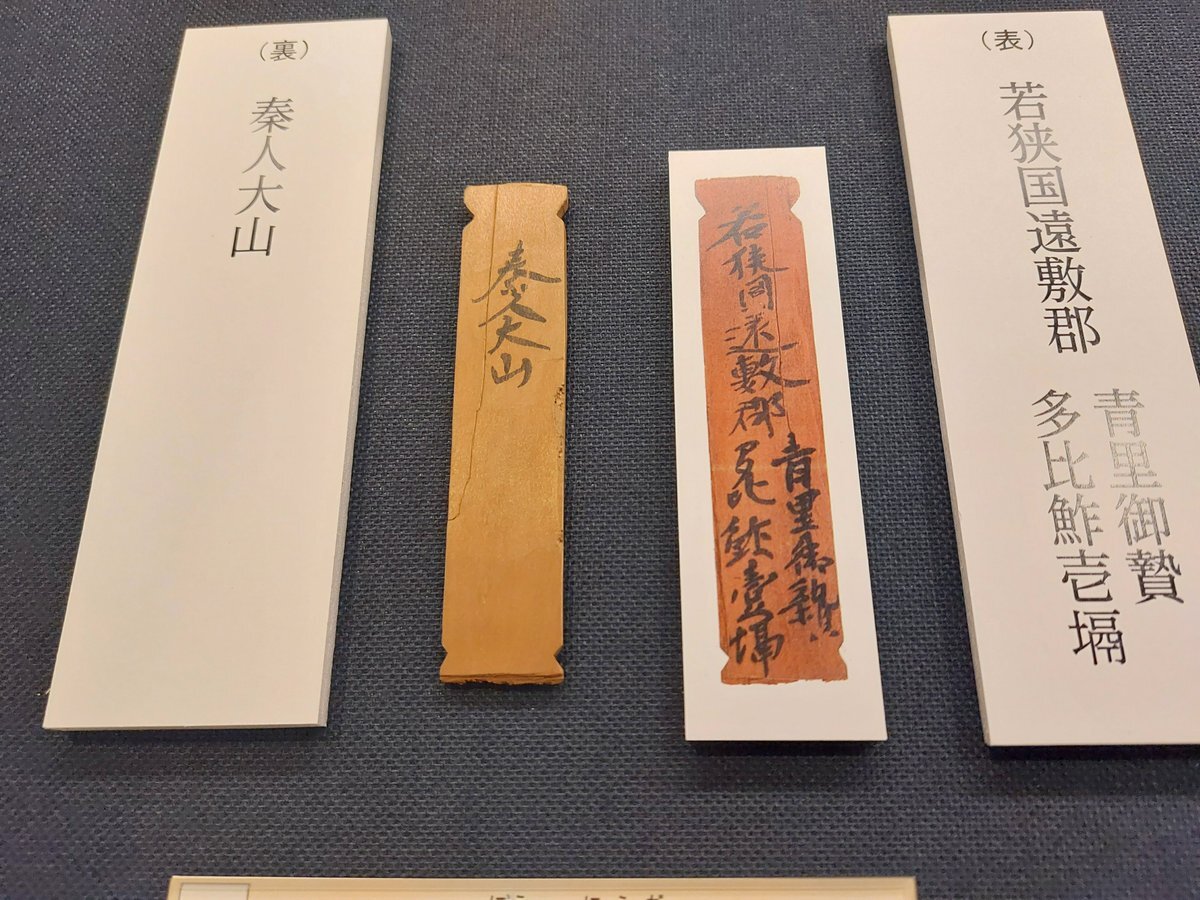 （表）
若狭国遠敷郡
青里御贄
多比鮓壱塥
若狭国遠敷郡
青里御贄
多比鮓壹塥
秦人大山
（裏）
秦人大山